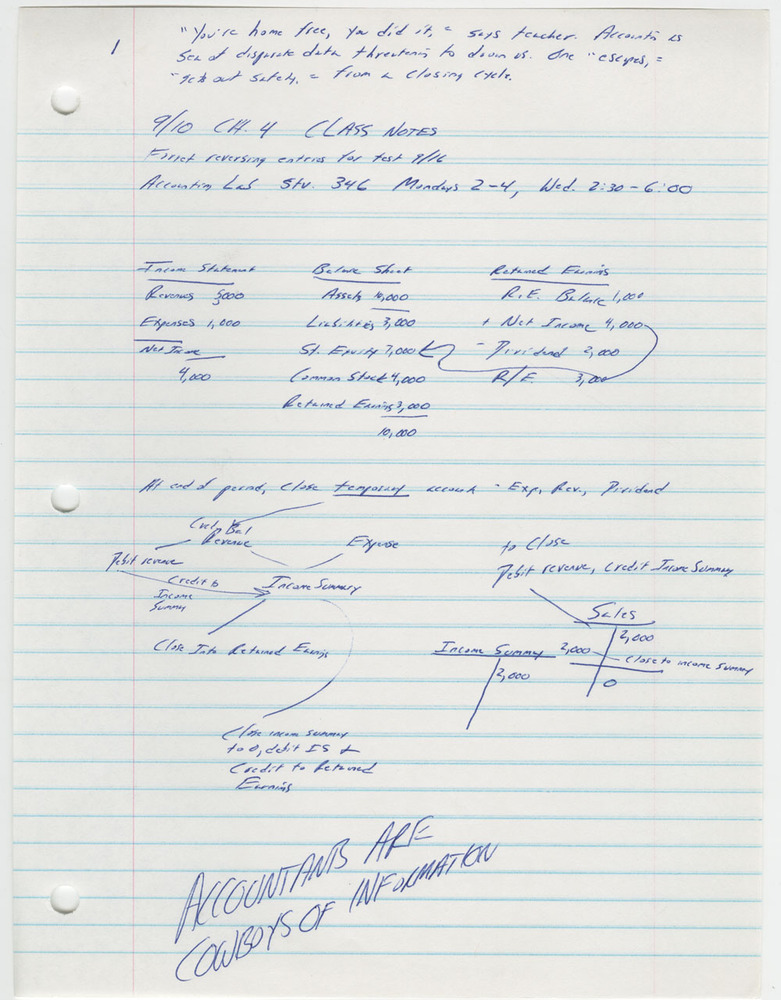 1
"You're home free, you did it," says teacher. Accounting as
Sea of disparate data threatening to drown us. One "escapes,"
"gets out safely," from a closing cycle.
9/10 CH. 4 CLASS NOTES
Forget reversing entries for test 9/16
Accounting Lab Stv. 346 Mondays 2-4, Wed. 2:30-6:00
Income Statement Balance Sheet Retained Earnings
Revenues 5000 Assets 10,000 R.E. Balance 1,000
Expenses 1,000 Liabilities 3,000 + Net Income 4,000
Net Income St. Equity 7,000 - Dividend 2,000
4,000 Common Stock 4,000 R/E 3,000
Retained Earnings 3,000
10,000
At end of period, close temporary accounts - Exp, Rev., Dividend
Bal
Revenue Expense to Close
Debit revenue Debit revenue, Credit Income Summary
Credit to Income Summary
Income
Summary
Sales
2,000
Close Into Retained Earnings Income Summary 2,000 Close to income summary
2,000 0
Close income summary
to 0, debit IS &
Credit to Retained
Earnings
ACCOUNTANTS ARE
COWBOYS OF INFORMATION